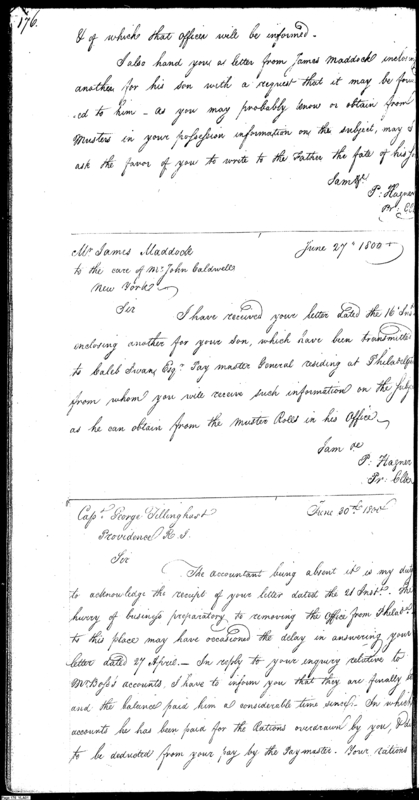 176.
& of which that officer will be informed.
I also hand you a letter from James Maddock inclosing
another for his son with a request that it may be forw
.ed to him – as you may probably know or obtain from
Musters in your possession information on the subject, may I
ask the favor of you to write to the Father the fate of his
I am &c.
P: Hagner
Pr: Cl
Mr. James Maddock
June 27th 1800
to the care of Mr. John Caldwells
New York
Sir
I have received your letter dated the 16' Ins
enclosing another for your son, which have been transmitte
to Caleb Swan, Esqr. Pay master General residing at Philadelp
from whom you will receive such information on the Subj
as he can obtain from the Muster Rolls in his Office.
I am &c
P: Hagner
Pr: Clk
Capt. George Tillinghast
June 30th 1800
Providence R. I.
Sir
The accountant being absent it is my duty
to acknowledge the receipt of your letter dated the 21 Inst. The
hurry of business preparatory to removing the Office from Philada.
to this place may have occasioned the delay in answering your
letter dated 27 April. – In reply to your enquiry relative to
Mr. Boss's accounts, I have to inform you that they are finally
and the balance paid him a considerable time since. – In which
accounts he has been paid for the Rations overdrawn by you, &
to be deducted from your pay by the Paymaster. Your rations